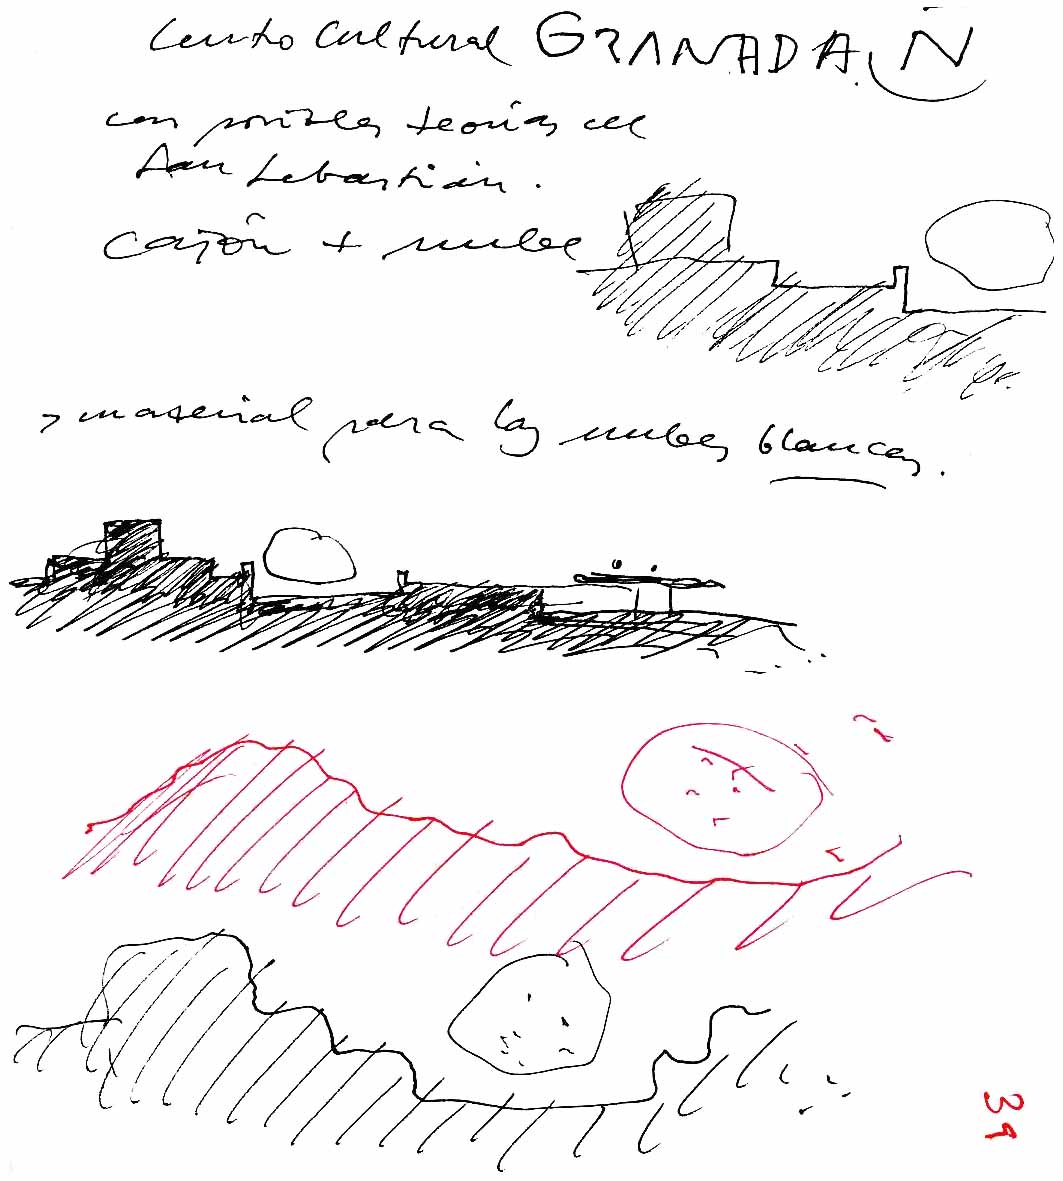 Centro Cultural GRANADA. Ñ
con posibles teorías del
San Sebastián.
Cajón + nubes
> material para las nubes blancas.
39